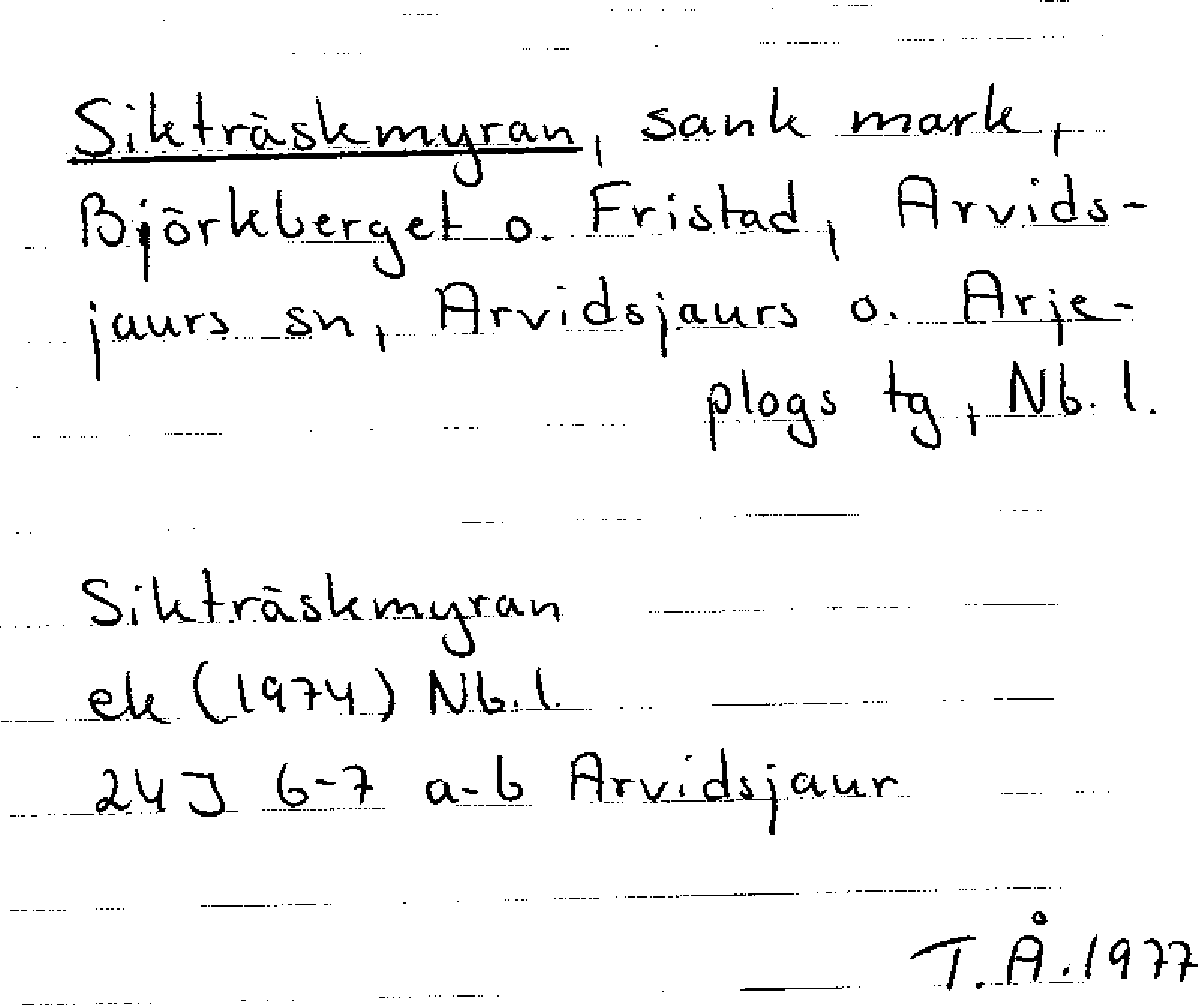 Sikträskmyran, sank mark,
Björkberget o. Fristad, Arvids-
jaurs sn, Arvidsjaurs o. Arje-
plogs tg, Nb. l.
Sikträskmyran
ek (1974) Nb. l.
24J 6-7 a-b Arvidsjaur
T.Å. 1977